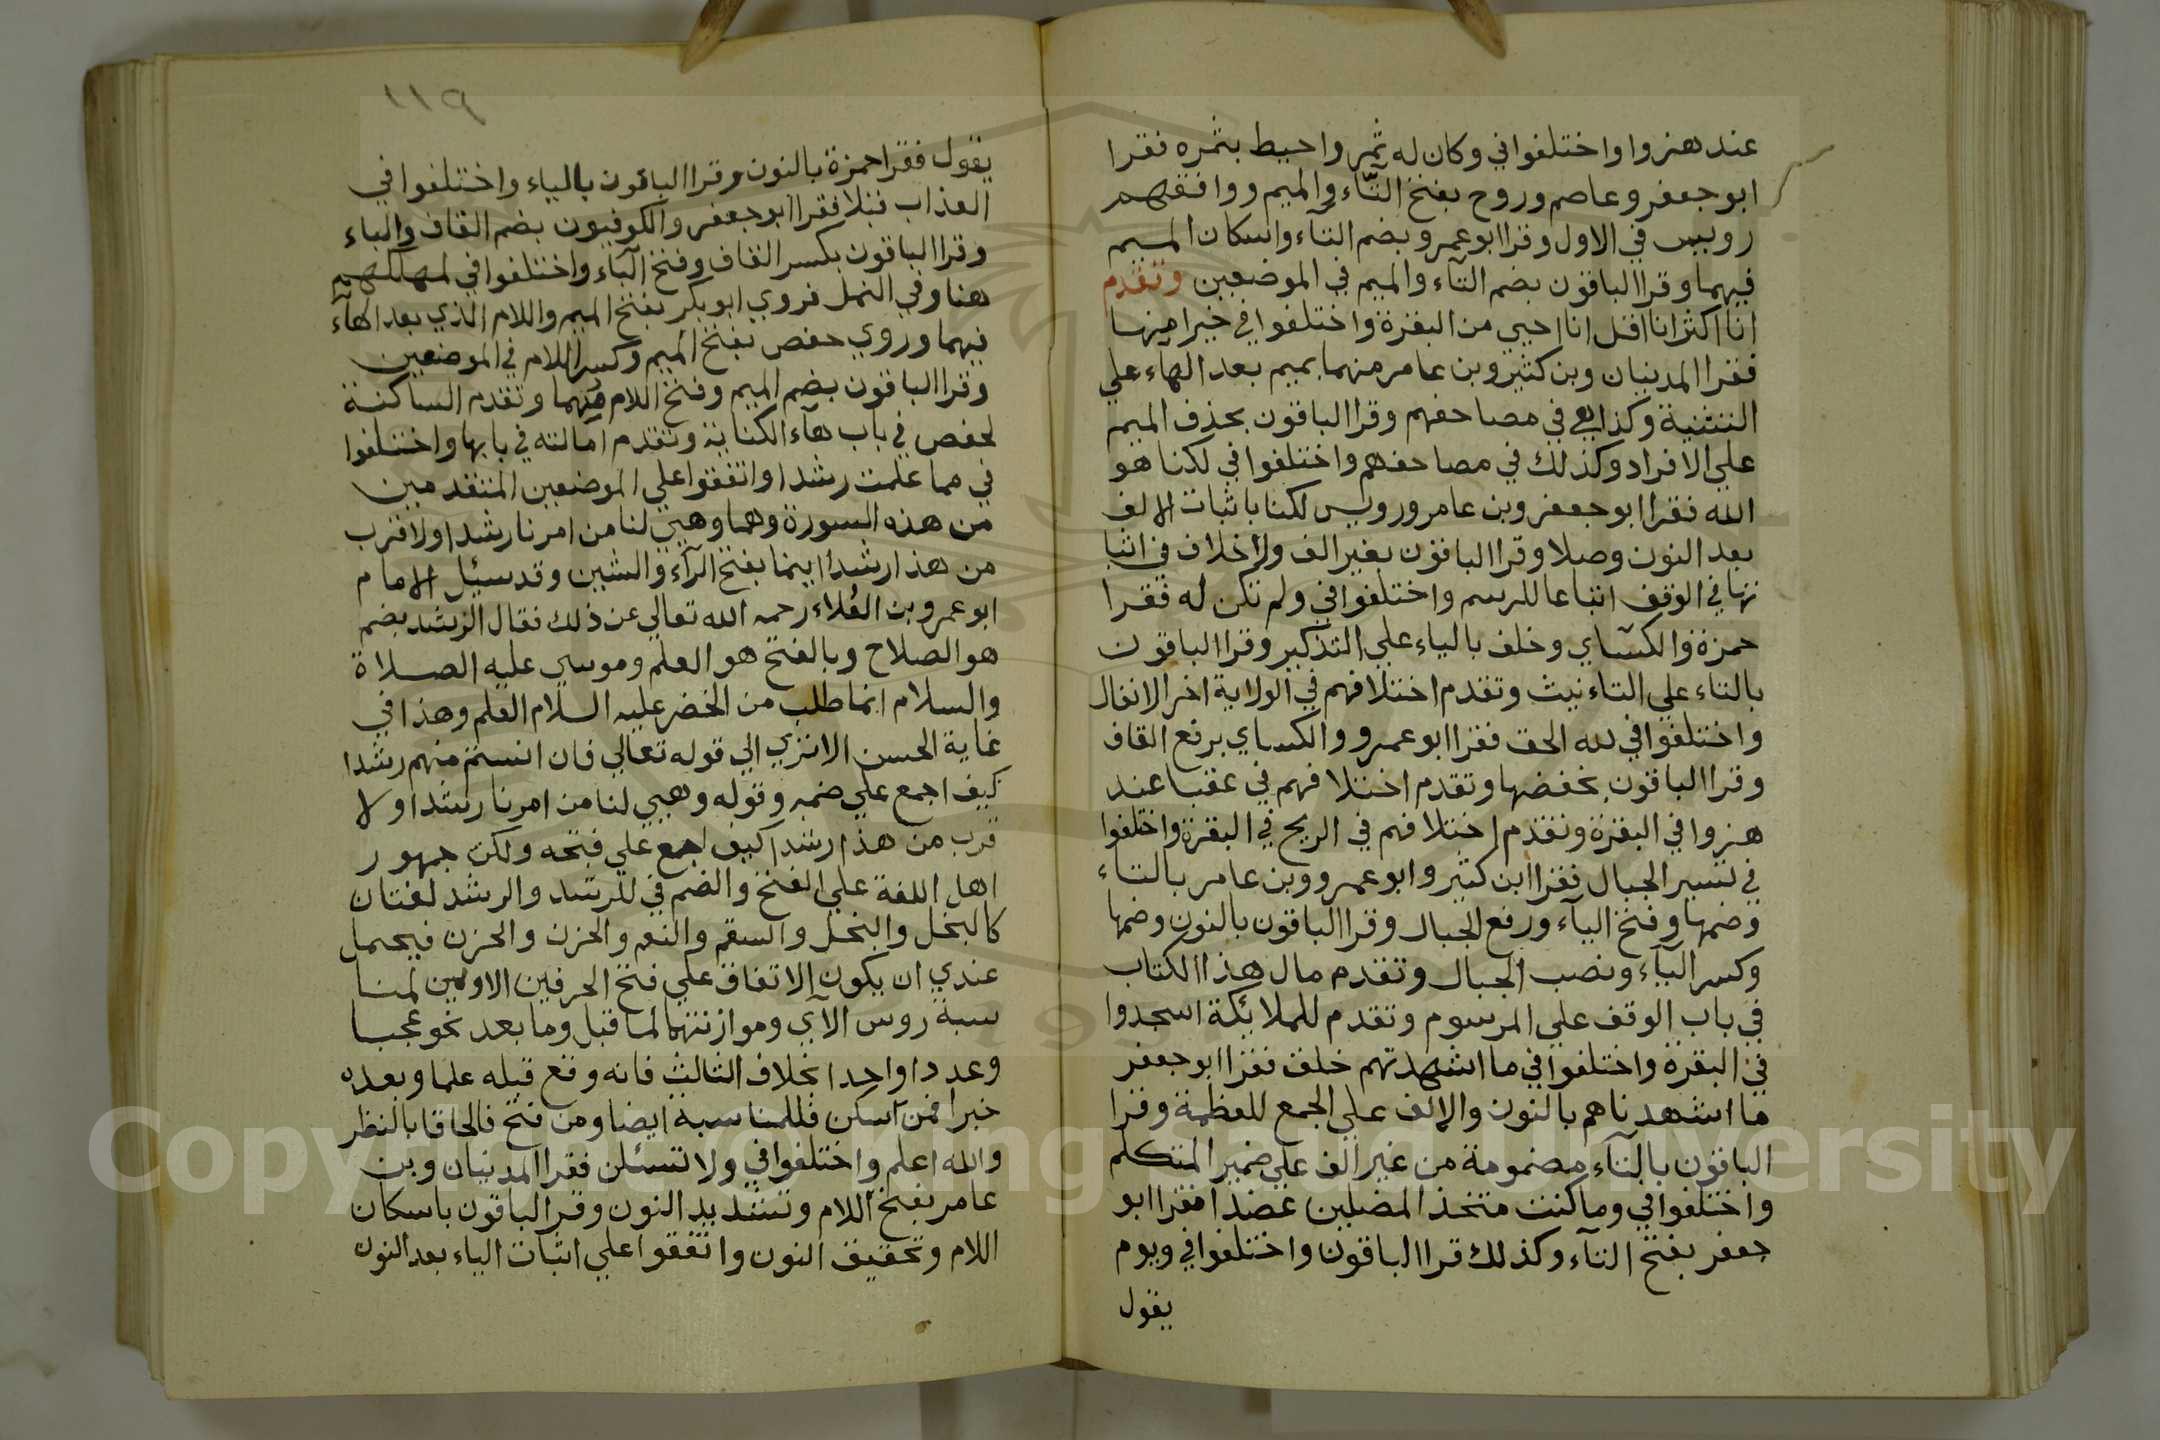 عند هزوا واختلفوا في وكان له ثمر واحيط بثمره فقرا
ابو جعفر وعاصم وروح بفتح الثاء والميم ووافقهم
رويس في الاول وقرا ابو عمرو بضم الثاء واسكان الميم
فيهما وقرا الباقون بضم الثاء والميم في الموضعين وتقدم
انا اكثر انا اقل انا احيي من البقرة واختلفوا في خيرا منها
فقرا المدنيان وبن كثير وبن عامر منهما بميم بعد الهاء علي
التثنية وكذا هي في مصاحفهم وقرا الباقون بحذف الميم
علي الافراد وكذلك في مصاحفهم واختلفوا في لكنا هو
الله فقرا ابو جعفر وبن عامر ورويس لكنا باثبات الالف
بعد النون وصلا وقرا الباقون بغير الف ولا خلاف في اثبا
تها في الوقف اتباعا للرسم واختلفوا في ولم تكن له فقرا
حمزة والكساي وخلف بالياء علي التذكير وقرا الباقون
بالتاء علي التاءنيث وتقدم اختلافهم في الولاية اخر الانفال
واختلفوا في لله الحق فقرا ابو عمرو والكساي برفع القاف
وقرا الباقون بخفضها وتقدم اختلافهم في عقبا عند
هزوا في البقرة وتقدم اختلافهم في الريح في البقرة واختلفوا
في تسير الجبال فقرا ابن كثير وابو عمرو وبن عامر بالتاء
وضمها وفتح الياء ورفع الجبال وقرا الباقون بالنون وضمها
وكسر الياء ونصب الجبال وتقدم مال هذا الكتاب
في باب الوقف علي المرسوم وتقدم للملائكة اسجدوا
في البقرة واختلفوا في ما اشهدتهم خلق فقرا ابو جعفر
ما اشهدناهم بالنون والالف علي الجمع للعظمة وقرا
الباقون بالتاء مضمومة من غير الف علي ضمير المتكلم
واختلفوا في وما كنت متخذ المضلين عضدا فقرا ابو
جعفر بفتح التاء وكذلك قرا الباقون واختلفوا في ويوم
يقول
١١٩
يقول فقرا حمزة بالنون وقرا الباقون بالياء واختلفوا في
العذاب قبلا فقرا ابو جعفر والكوفيون بضم القاف والباء
وقرا الباقون بكسر القاف وفتح الباء واختلفوا في لمهلكهم
هنا وفي النمل فروي ابو بكر بفتح الميم واللام الذي بعد الهاء
فيهما وروي حفص بفتح الميم وكسر اللام في الموضعين
وقرا الباقون بضم الميم وفتح اللام فيهما وتقدم الساكنة
لحفص في باب هاء الكناية وتقدم امالته في بابها واختلفوا
في مما علمت رشدا واتفقوا علي الموضعين المتقدمين
من هذه السورة وهما وهيي لنا من امرنا رشدا ولاقرب
من هذا رشدا اينما بفتح الراء والشين وقد سيئل الامام
ابو عمرو بن العلاء رحمه الله تعالي عن ذلك فقال الرشد بضم
هو الصلاح وبالفتح هو العلم وموسي عليه الصلاة
والسلام انما طلب من الخضر عليه السلام العلم وهذا في
غاية الحسن الا تري الي قوله تعالي فان انستم منهم رشدا
كيف اجمع علي ضمه وقوله وهيي لنا من امرنا رشدا ولا
قرب من هذا رشدا كيف اجمع علي فتحه ولكن جمهور
اهل اللغة علي الفتح والضم في للرشد والرشد لغتان
كالبخل والبخل والسقم والنعم والحزن والحزن فيحمل
عندي ان يكون الاتفاق علي فتح الحرفين الاولين لمنا
سبة روس الآي وموازنتهما لما قبل وما بعد نحو عجبا
وعددا واحدا بخلاف الثالث فانه وقع قبله علما وبعده
خبرا فمن اسكن فللمناسبة ايضا ومن فتح فالحاقا بالنظر
والله اعلم واختلفوا في ولا تسئلن فقرا المدنيان وبن
عامر بفتح اللام وتشديد النون وقرا الباقون باسكان
اللام وتخفيف النون واتفقوا علي اثبات الياء بعد النون